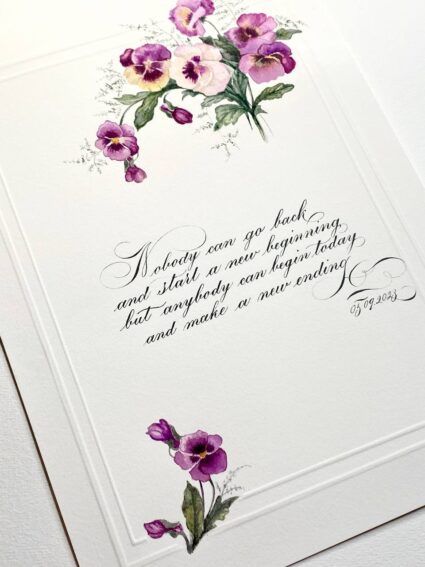 Nobody can go back
and start a new beginning,
but anybody can begin today
and make a new ending
05.09.2023